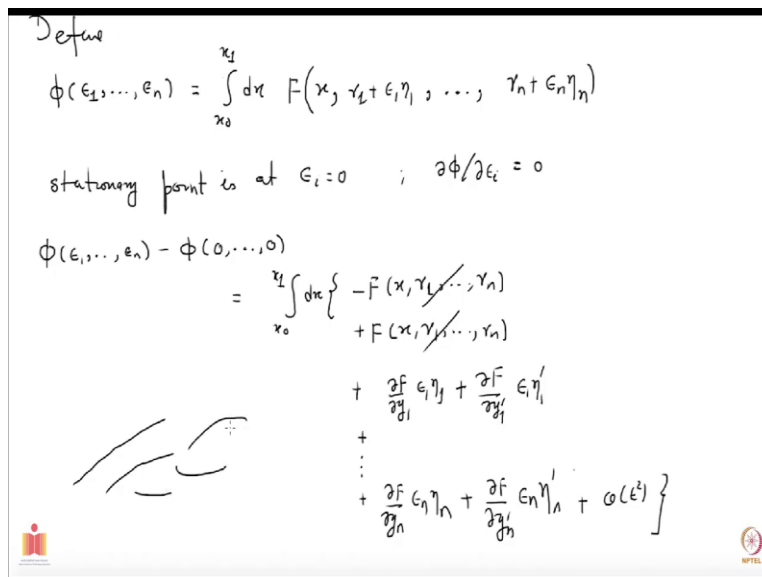 Define
ϕ(ε1,...,εn) = ∫_{x0}^{x1} dx F(x, γ1+ε1η1, ..., γn+εnηn)
stationary point is at εi=0 ; ∂ϕ/∂εi = 0
ϕ(ε1,..,εn) − ϕ(0,...,0)
= ∫_{x0}^{x1} dx { −F(x,γ1,...,γn)
+F(x,γ1,...,γn)
+ ∂F/∂y1 ε1η1 + ∂F/∂y1' ε1η1'
+
⋮
+ ∂F/∂yn εnηn + ∂F/∂yn' εnηn' + O(ε²) }
NPTEL